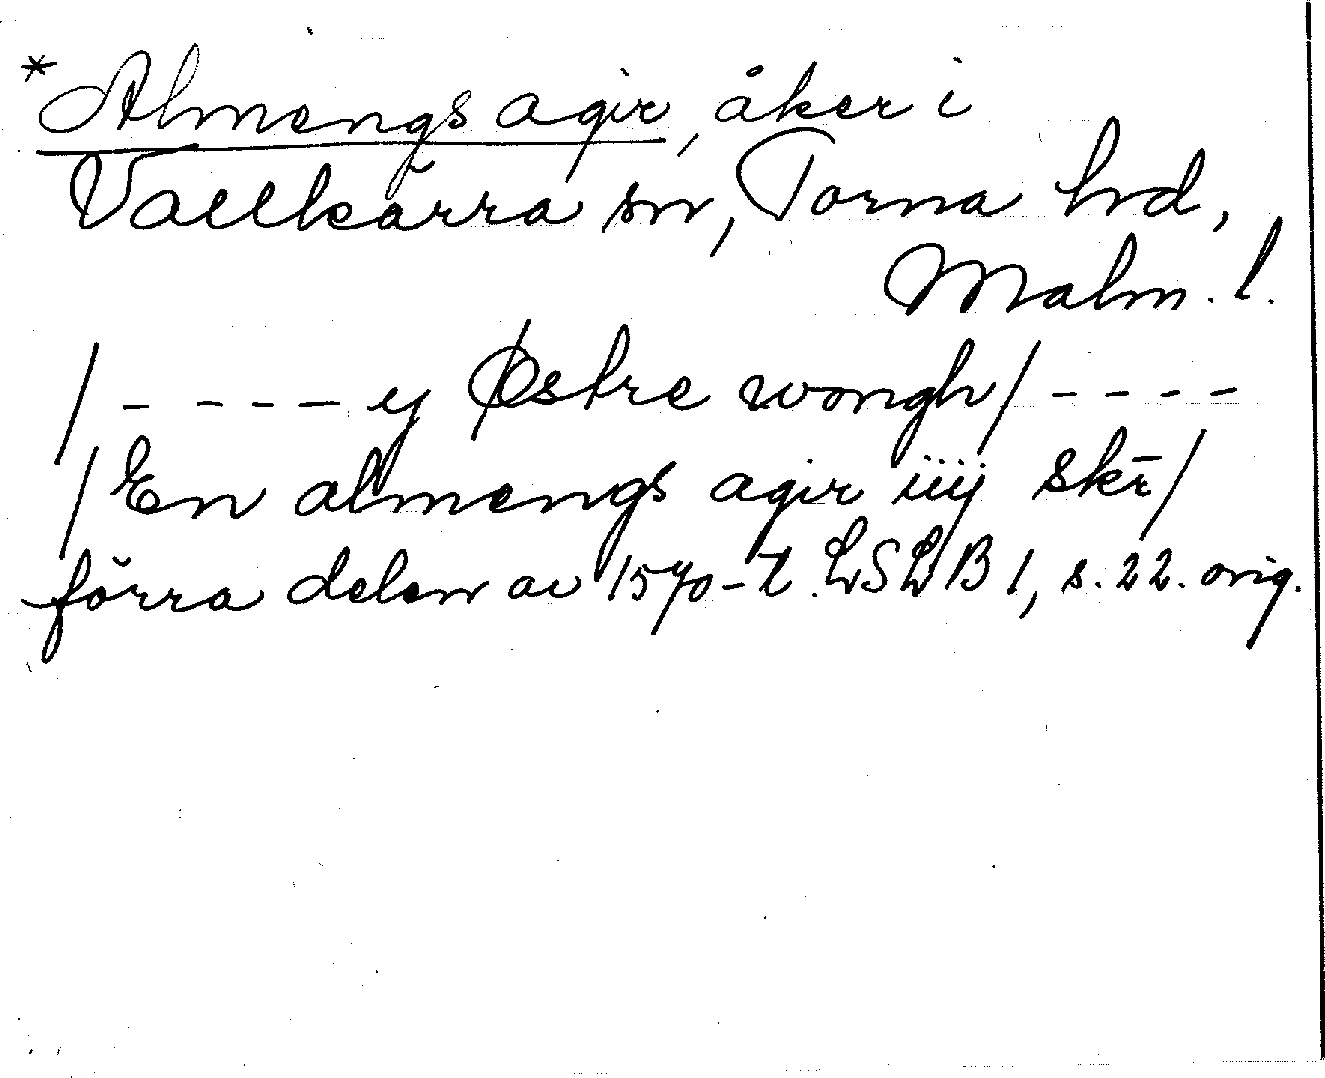 *Almengs agir, åker i
Vallkärra sn, Torna hd,
Malm. l.
/ - - - - y Østre wongh/ - - - -
/ En almengs agir iiij skr̄ /
förra delen av 1570-t. LSLB 1, s. 22. orig.